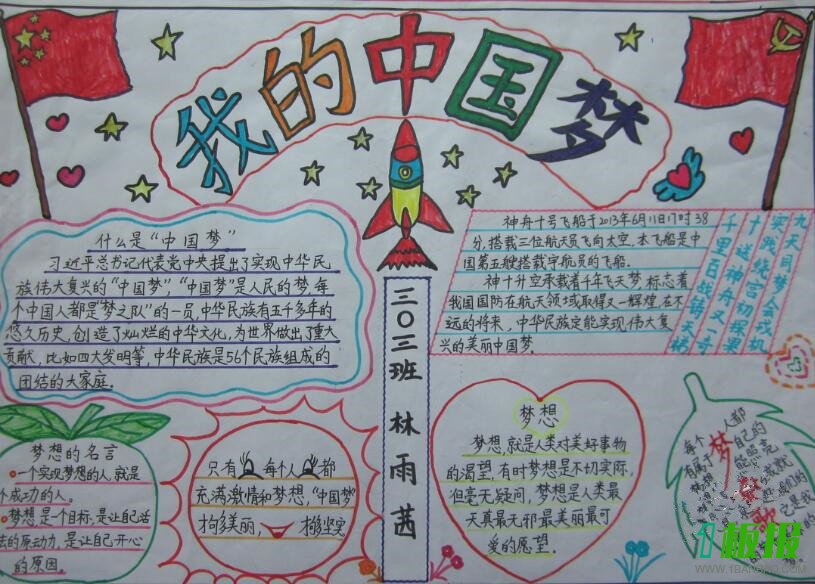 我的中国梦
什么是“中国梦”
习近平总书记代表党中央提出了实现中华民
族伟大复兴的“中国梦”,“中国梦”是人民的梦,每
个中国人都是“梦之队”的一员,中华民族有五千多年的
悠久历史,创造了灿烂的中华文化,为世界做出了重大
贡献,比如四大发明等,中华民族是56个民族组成的
团结的大家庭。
神舟十号飞船于2013年6月11日17时38
分,搭载三位航天员飞向太空,本飞船是中
国第五艘搭载宇航员的飞船。
神十升空承载着千年飞天梦,标志着
我国国防在航天领域取得又一辉煌,在不
远的将来,中华民族定能实现伟大复
兴的美丽中国梦.
九天同梦会戎机
实践绕宫初探果
十送神舟又一奇
千里百战铸天梯
三〇三班 林雨茜
梦想的名言
一个实现梦想的人,就是
个成功的人。
梦想是一个目标,是让自己活
法的原动力,是让自己开心
的原因。
只有每个人都
充满激情和梦想,“中国梦”
才够多美丽,才够坚实
梦想
梦想,就是人类对美好事物
的渴望,有时梦想是不切实际,
但毫无疑问,梦想是人类最
天真最无邪最美丽最可
爱的愿望。
每个人都
有属于
自己的
梦想
板报
WWW.1BANBAO.COM